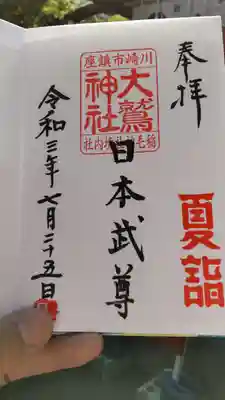 奉拝
夏詣
川崎市鎮座
大鷲神社
稲毛神社境内社
日本武尊
令和三年七月二十五日